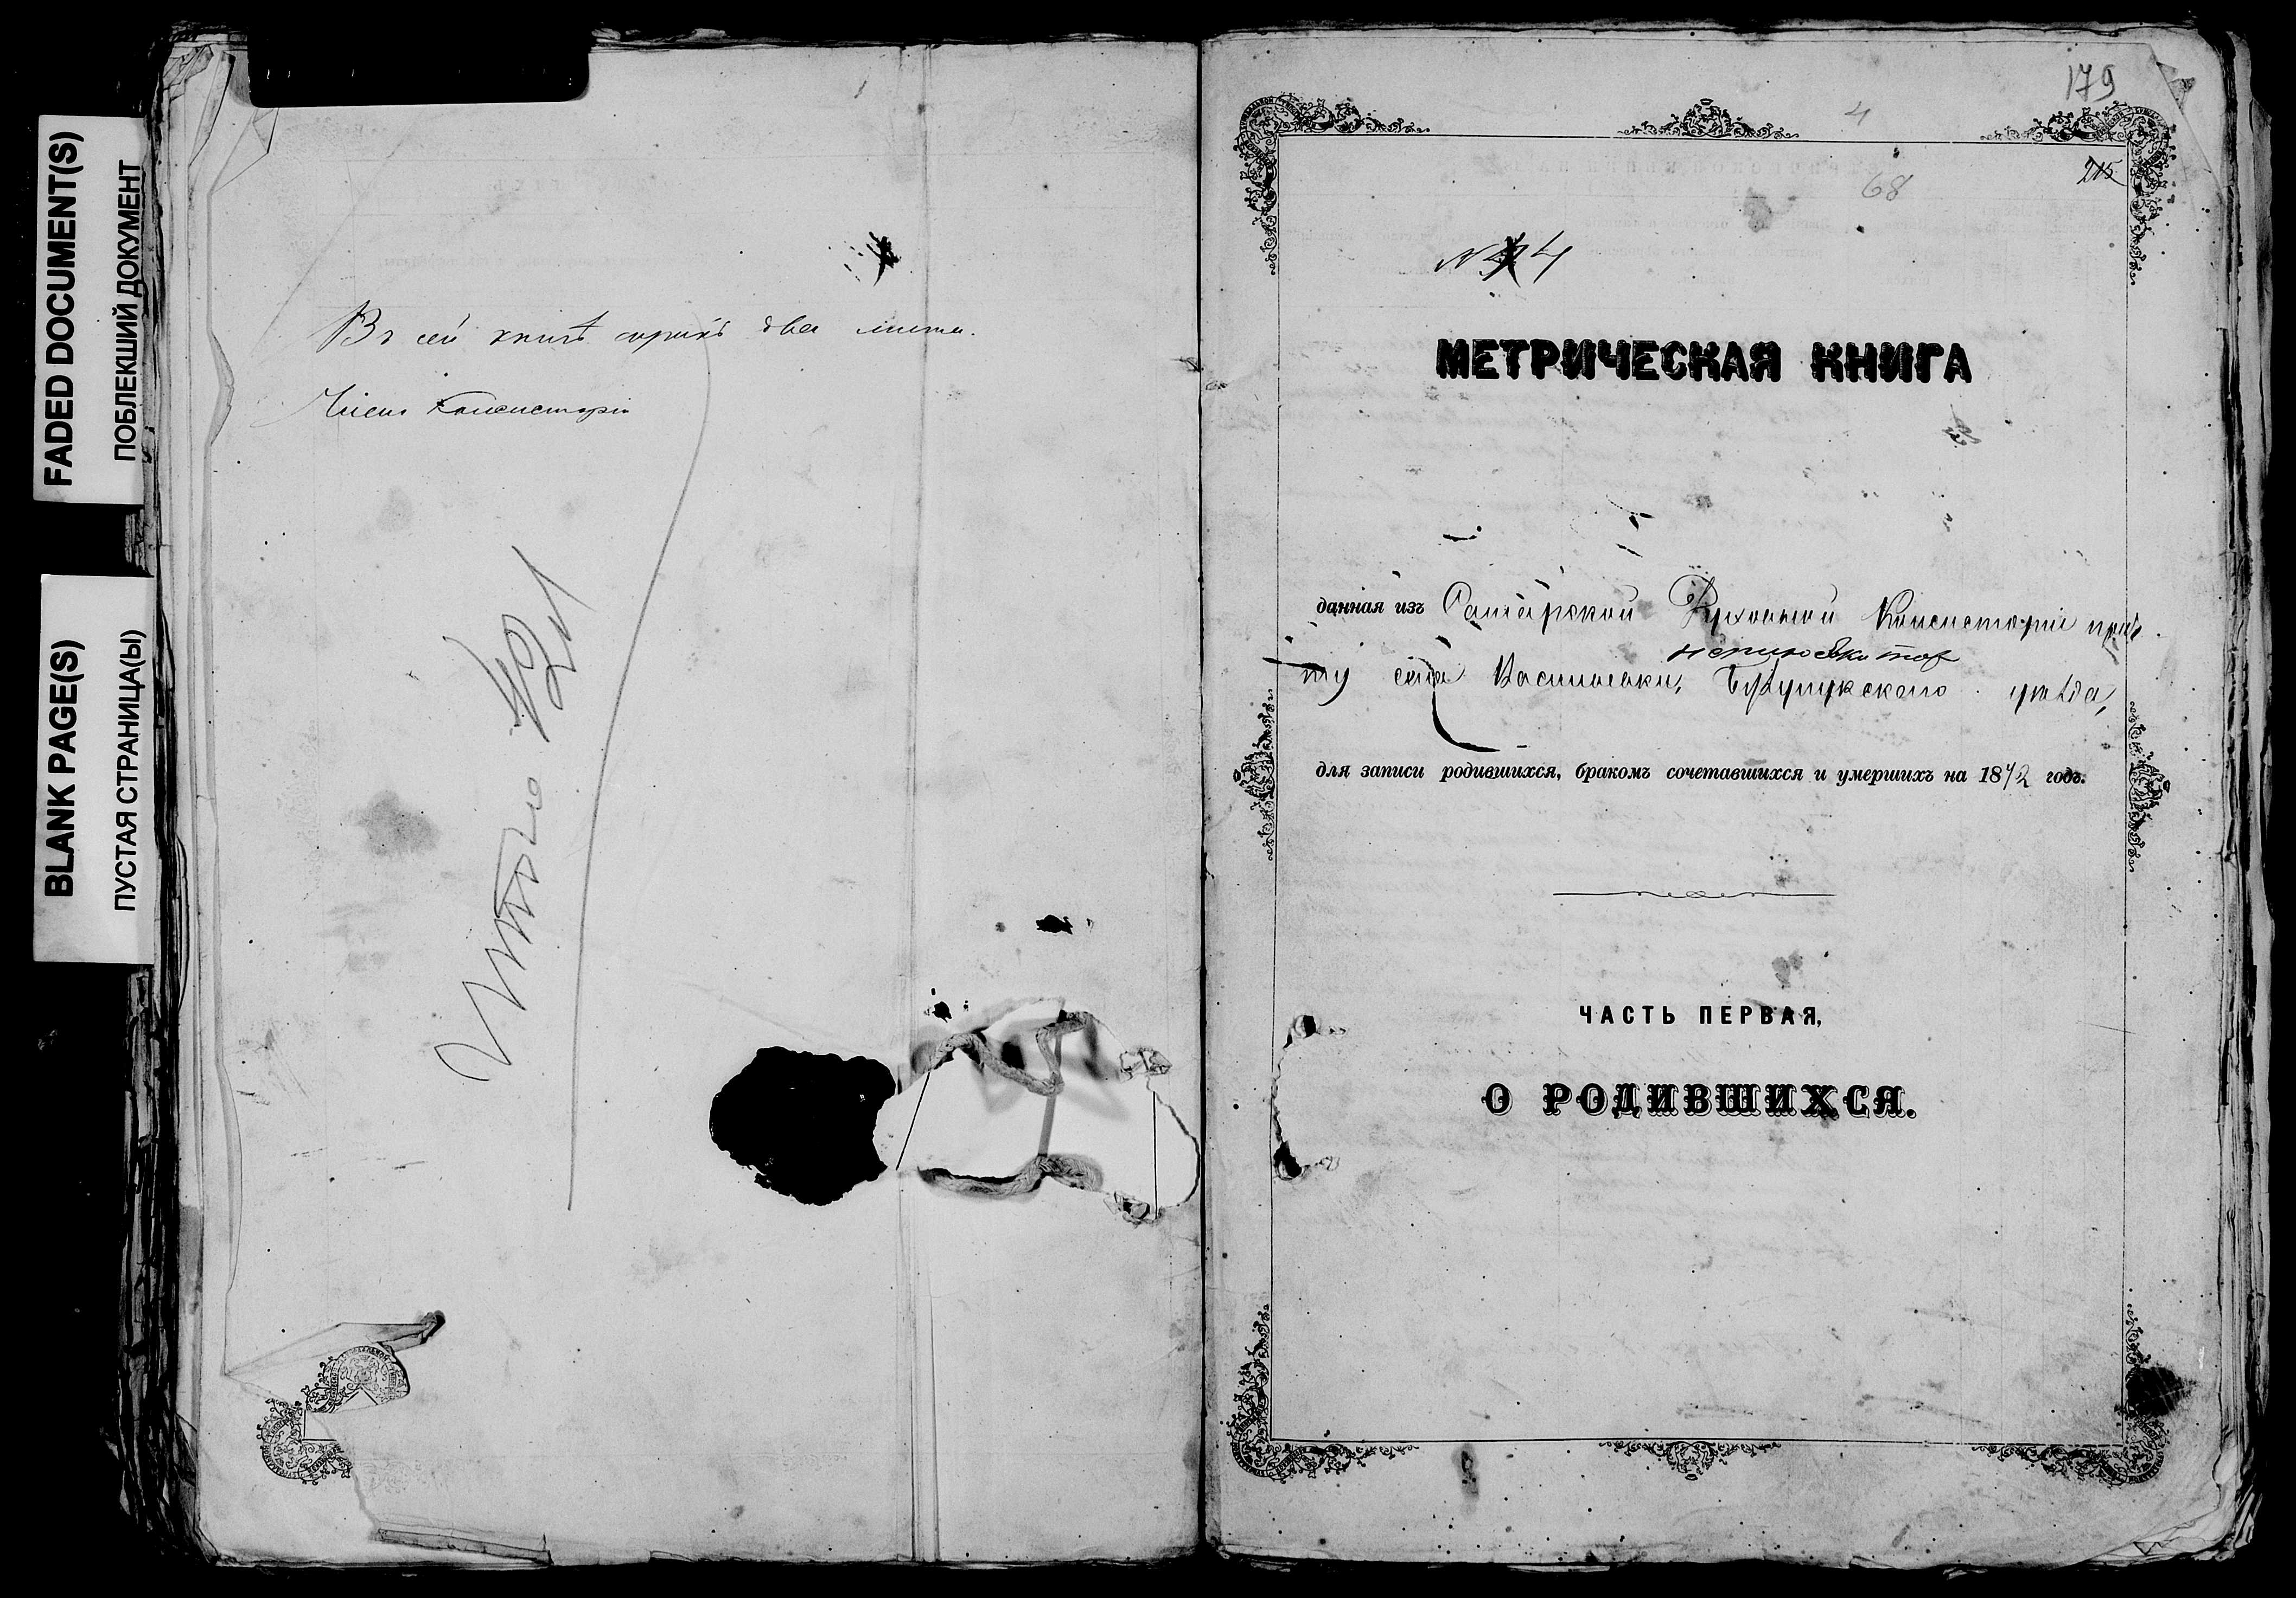 FADED DOCUMENT(S)
ПОБЛЕКШИЙ ДОКУМЕНТ
BLANK PAGE(S)
ПУСТАЯ СТРАНИЦА(Ы)
Въ сей книгѣ сорокъ два листа.
Членъ Консисторіи
Итого 42 л
179
4
68
215
№ 4
МЕТРИЧЕСКАЯ КНИГА
данная изъ Самарской Духовной Консисторіи прич
ту села Васильевки, Бузулукскаго уѣзда,
для записи родившихся, бракомъ сочетавшихся и умершихъ на 1872 годъ.
ЧАСТЬ ПЕРВАЯ,
О РОДИВШИХСЯ.